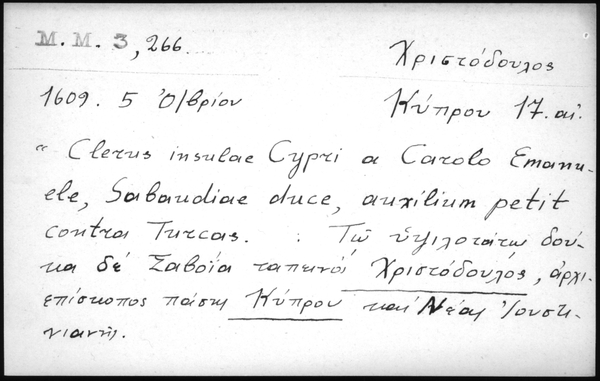 M. M. 3, 266.
Χριστόδουλος
1609. 5 Ὀ/βρίου
Κύπρου 17. αἰ.
" Clerus insulae Cypri a Carolo Emanu-
ele, Sabaudiae duce, auxilium petit
contra Turcas. : Τῷ ὑψιλοτάτῳ δού-
κα δέ Σαβοΐα ταπεινοί Χριστόδουλός, ἀρχι-
επίσκοπος πάσης Κύπρου καί Νέας Ἰουστι-
νιανῆς.